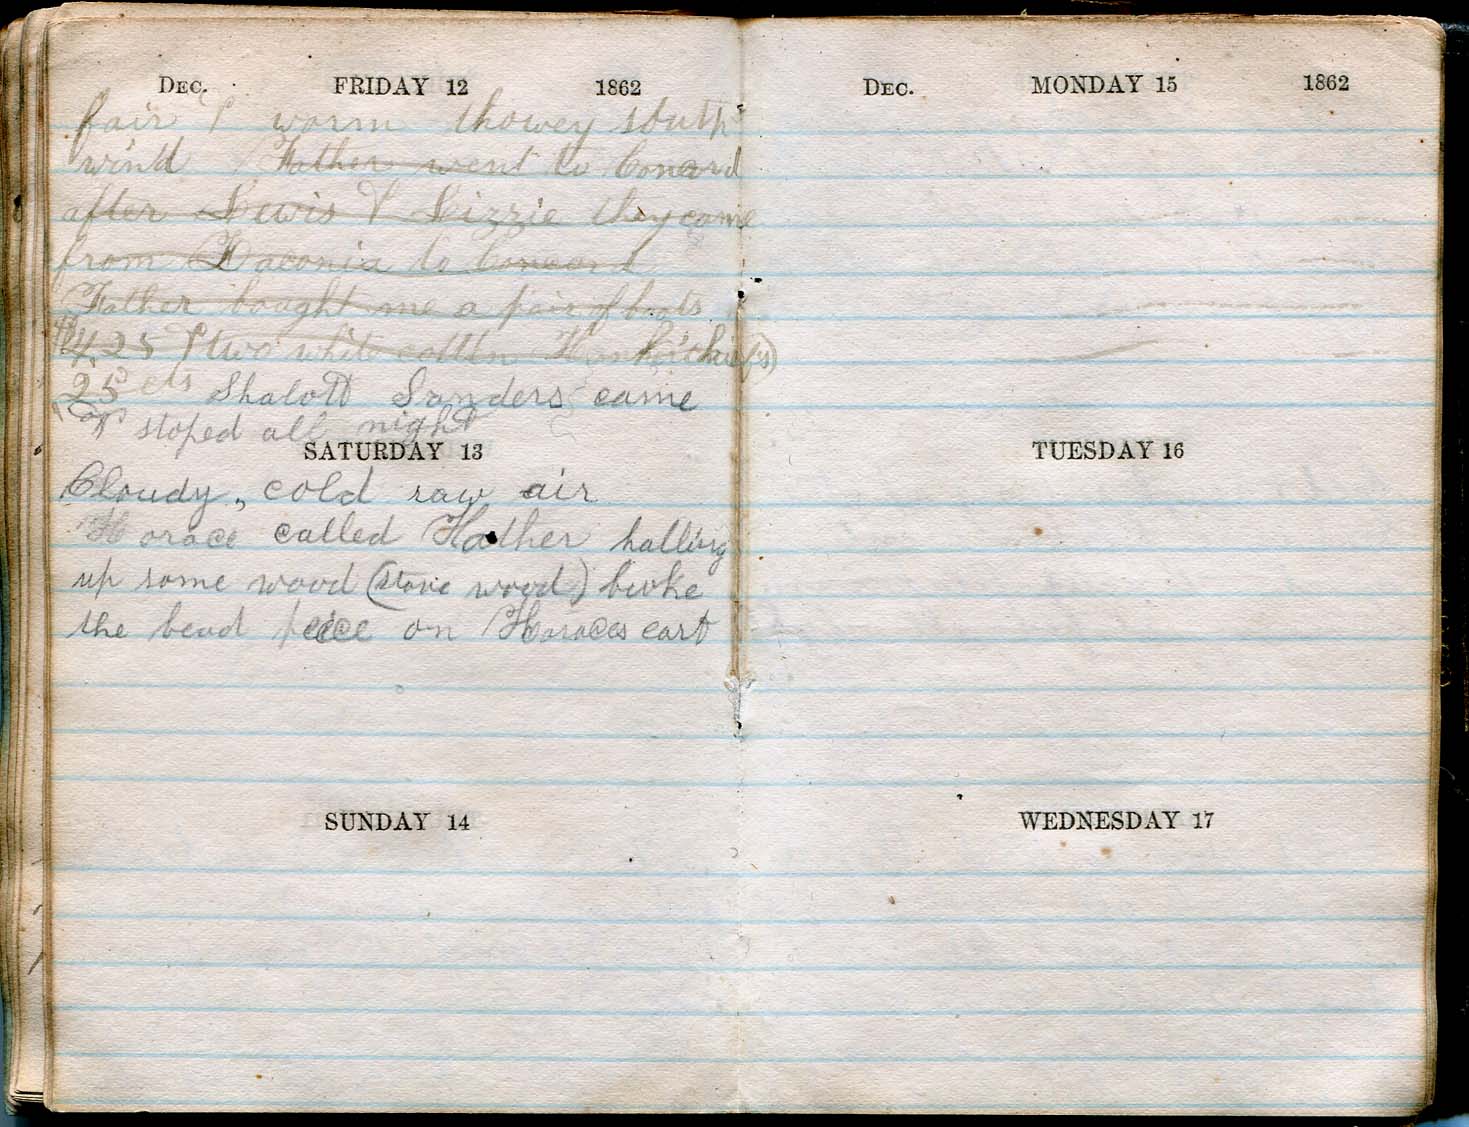 DEC. FRIDAY 12 1862
fair & warm thowey south
wind Father went to Concord
after Lewis & Lizzie they came
from Laconia to Concord
Father bought me a pair of boots
$4.25 & two white cotten Hankerchiefs
25 cts Shalott Sanders came
& stoped all night
SATURDAY 13
Cloudy, cold raw air
Horace called Father halling
up some wood (stove wood) broke
the head peice on Horaces cart
SUNDAY 14
DEC. MONDAY 15 1862
TUESDAY 16
WEDNESDAY 17